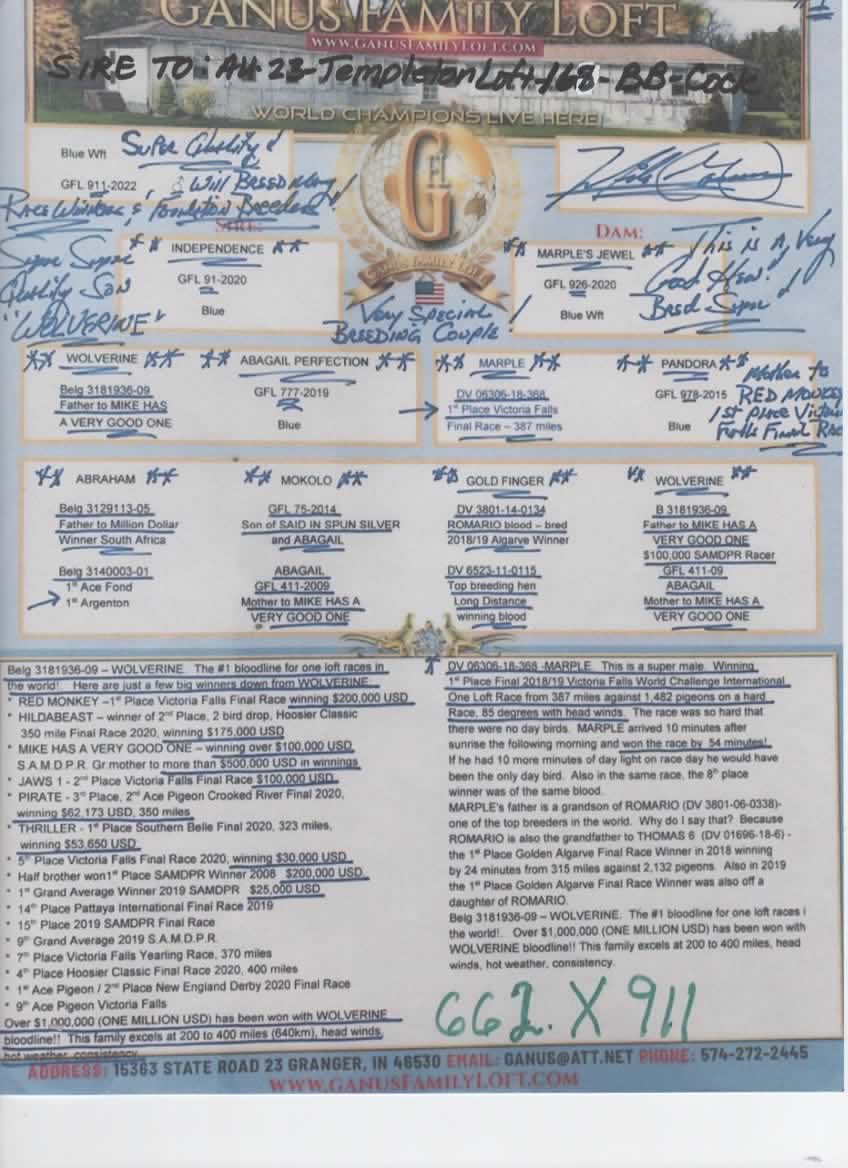 GANUS FAMILY LOFT
WWW.GANUSFAMILYLOFT.COM
SIRE TO: AU-23-Templeton Loft-168-BB-Cock
WORLD CHAMPIONS LIVE HERE
Blue Wft Super Quality!
GFL 911-2022, ♂ Will Breed Many
Race Winners & Foundation Breeders!
GFL
GANUS FAMILY LOFT
SIRE:
** INDEPENDENCE **
GFL 91-2020
Blue
Super Super
Quality Son
"WOLVERINE"
DAM:
** MARPLE'S JEWEL **
GFL 926-2020
Blue Wft
This is A Very
Good Hen!
Breed Super!
Very Special
Breeding Couple!
** WOLVERINE **
Belg 3181936-09
Father to MIKE HAS
A VERY GOOD ONE
** ABAGAIL PERFECTION **
GFL 777-2019
Blue
** MARPLE **
DV 06306-18-368
1st Place Victoria Falls
Final Race – 387 miles
** PANDORA **
GFL 978-2015
Blue
Mother to
RED MONKEY
1st Place Victoria
Falls Final Race
** ABRAHAM **
Belg 3129113-05
Father to Million Dollar
Winner South Africa
Belg 3140003-01
1st Ace Fond
1st Argenton
** MOKOLO **
GFL 75-2014
Son of SAID IN SPUN SILVER
and ABAGAIL
ABAGAIL
GFL 411-2009
Mother to MIKE HAS A
VERY GOOD ONE
** GOLD FINGER **
DV 3801-14-0134
ROMARIO blood – bred
2018/19 Algarve Winner
DV 6523-11-0115
Top breeding hen
Long Distance
winning blood
** WOLVERINE **
B 3181936-09
Father to MIKE HAS A
VERY GOOD ONE
$100,000 SAMDPR Racer
GFL 411-09
ABAGAIL
Mother to MIKE HAS A
VERY GOOD ONE
Belg 3181936-09 – WOLVERINE. The #1 bloodline for one loft races in
the world!. Here are just a few big winners down from WOLVERINE:
* RED MONKEY –1st Place Victoria Falls Final Race winning $200,000 USD
* HILDABEAST – winner of 2nd Place, 2 bird drop, Hoosier Classic
350 mile Final Race 2020, winning $175,000 USD
* MIKE HAS A VERY GOOD ONE – winning over $100,000 USD
S.A.M.D.P.R. Gr.mother to more than $500,000 USD in winnings
* JAWS 1 - 2nd Place Victoria Falls Final Race $100,000 USD
* PIRATE - 3rd Place, 2nd Ace Pigeon Crooked River Final 2020,
winning $62,173 USD, 350 miles
* THRILLER - 1st Place Southern Belle Final 2020, 323 miles,
winning $53,650 USD
* 5th Place Victoria Falls Final Race 2020, winning $30,000 USD
* Half brother won1st Place SAMDPR Winner 2008 $200,000 USD
* 1st Grand Average Winner 2019 SAMDPR $25,000 USD
* 14th Place Pattaya International Final Race 2019
* 15th Place 2019 SAMDPR Final Race
* 9th Grand Average 2019 S.A.M.D.P.R.
* 7th Place Victoria Falls Yearling Race, 370 miles
* 4th Place Hoosier Classic Final Race 2020, 400 miles
* 1st Ace Pigeon / 2nd Place New England Derby 2020 Final Race
* 9th Ace Pigeon Victoria Falls
Over $1,000,000 (ONE MILLION USD) has been won with WOLVERINE
bloodline!! This family excels at 200 to 400 miles (640km), head winds,
hot weather, consistency.
* DV 06306-18-368 -MARPLE. This is a super male. Winning
1st Place Final 2018/19 Victoria Falls World Challenge International
One Loft Race from 387 miles against 1,482 pigeons on a hard
Race, 85 degrees with head winds. The race was so hard that
there were no day birds. MARPLE arrived 10 minutes after
sunrise the following morning and won the race by 54 minutes!
If he had 10 more minutes of day light on race day he would have
been the only day bird. Also in the same race, the 8th place
winner was of the same blood.
MARPLE's father is a grandson of ROMARIO (DV 3801-06-0338)-
one of the top breeders in the world. Why do I say that? Because
ROMARIO is also the grandfather to THOMAS 6 (DV 01696-18-6) -
the 1st Place Golden Algarve Final Race Winner in 2018 winning
by 24 minutes from 315 miles against 2,132 pigeons. Also in 2019
the 1st Place Golden Algarve Final Race Winner was also off a
daughter of ROMARIO.
Belg 3181936-09 – WOLVERINE. The #1 bloodline for one loft races i
the world!. Over $1,000,000 (ONE MILLION USD) has been won with
WOLVERINE bloodline!! This family excels at 200 to 400 miles, head
winds, hot weather, consistency.
662 X 911
ADDRESS: 15363 STATE ROAD 23 GRANGER, IN 46530 EMAIL: GANUS@ATT.NET PHONE: 574-272-2445
WWW.GANUSFAMILYLOFT.COM